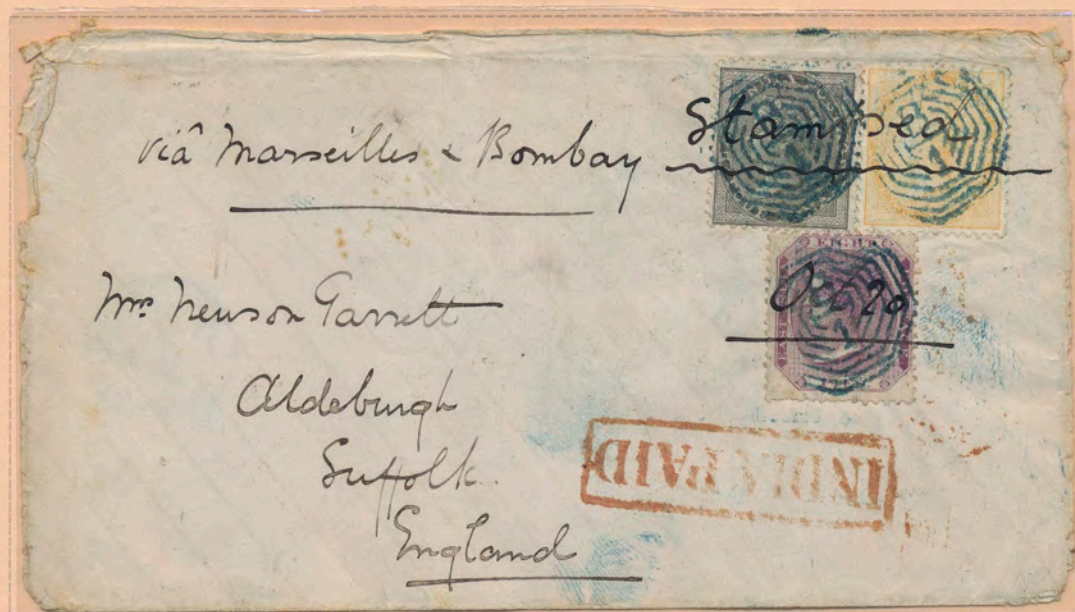 viâ Marseilles & Bombay
Stamped
Oct 20
Mrs Newson Garrett
Aldeburgh
Suffolk
England
EIGHT
EAST
INDIA PAID